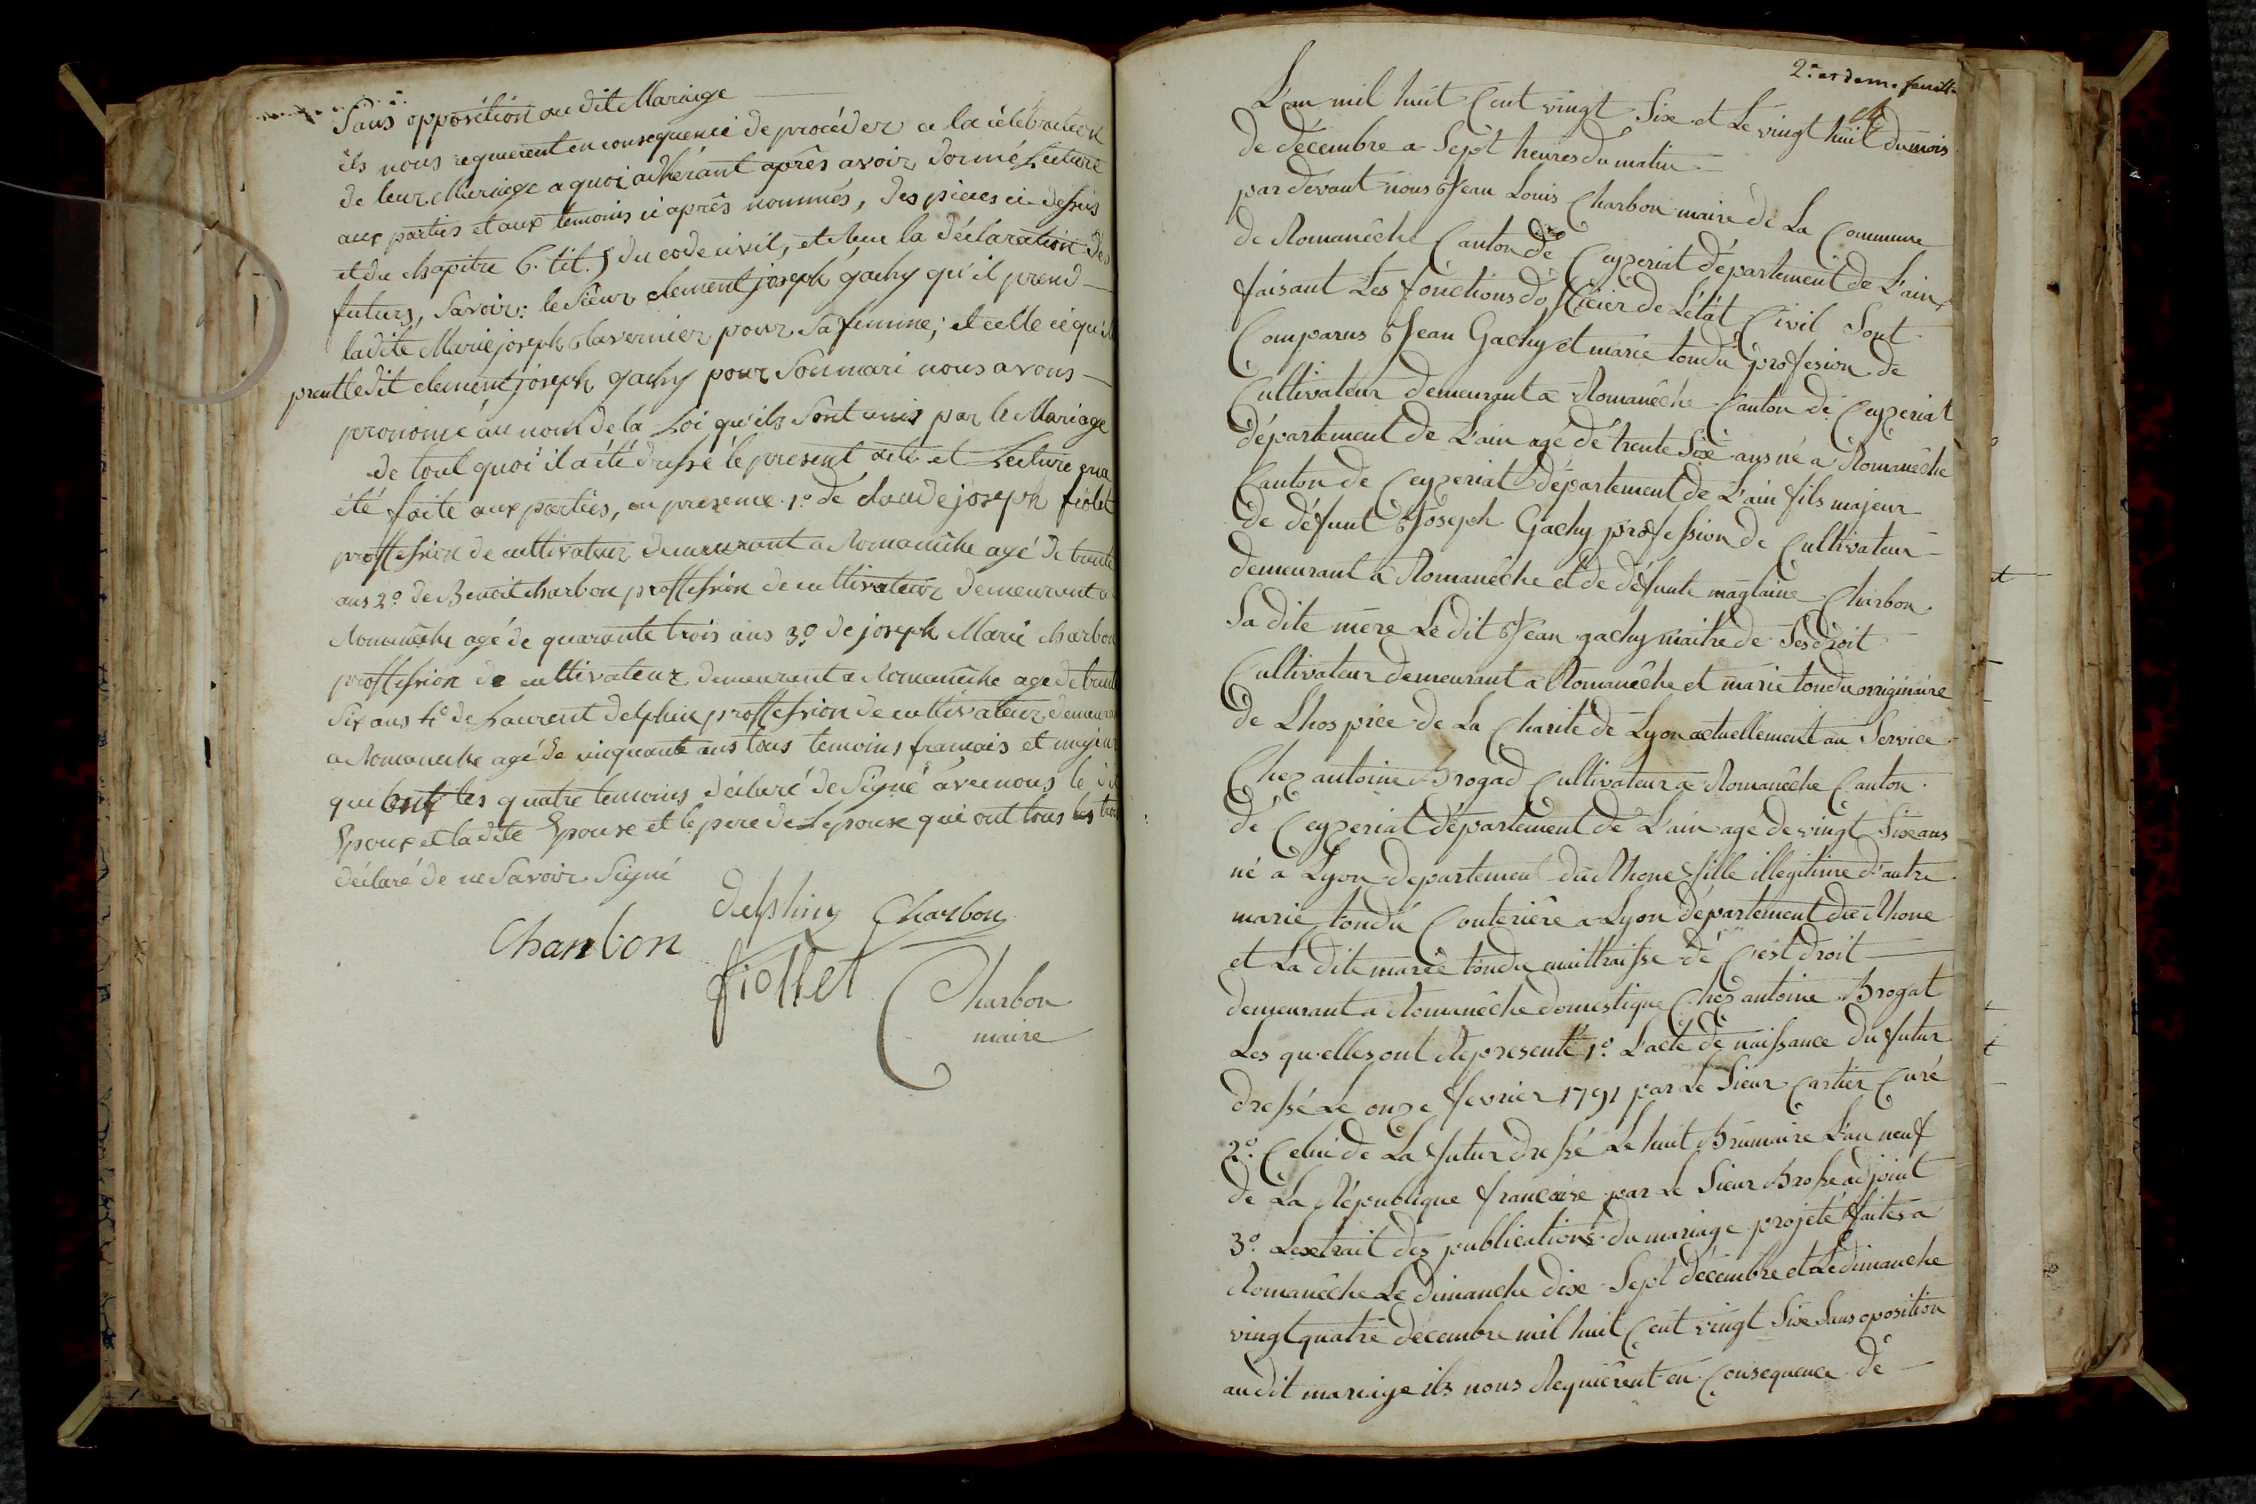 Sans opposition au dit Mariage
ils nous requierent en consequence de procéder a la célébration
de leur Mariage a quoi adhérant après avoir donné Lecture
aux parties et aux temoins ci après nommés, des pieces ci dessus
et du chapitre 6. tit. 5 du code civil, et reçu la déclaration des
futurs, Savoir: le Sieur clement joseph gachy qu'il prend
ladite Marie joseph tavernier pour Sa femme; et celle ci qu'il
prent ledit clement joseph gachy pour Son mari nous avons
prononcé au nom de la Loi qu'ils Sont unis par le Mariage
de tout quoi il a été dressé le present acte et Lecture en a
été faite aux parties, en presence 1.o de claude joseph fiolet
proffession de cultivateur demeurant a Romanêche agé de trente
ans 2.o de Benoit charbon proffession de cultivateur demeurent a
Romanêche agé de quarante trois ans 3.o de joseph Marie charbon
proffession de cultivateur demeurent a Romanêche agé de trente
Six ans 4.o de Laurent delphin proffession de cultivateur demeurant
a Romaneche agé de cinquante ans tous temoins francais et majeur
qui ont les quatre temoins déclaré de Signé avec nous le dit
Epoux et ladite Epouse et le pere de Lepouse qui ont tous les trois
déclaré de ne Savoir Signé
delphin Charbon
Charbon
fiollet
Charbon
maire
2.e et dem.e feuille
L'an mil huit Cent vingt Six et Le vingt huit du mois
de décembre a Sept heures du matin
par dévant nous Jean Louis Charbon maire de La Commune
de Romanêche Canton de Ceyzeriat département de L'ain
faisant Les fonctions dofficier de L'état Civil Sont
Comparus Jean Gachy et marie tondu profesion de
Cultivateur demeurant a Romanêche Canton de Ceyzeriat
département de L'ain agé de trente Six ans né a Romanêche
Canton de Ceyzeriat département de L'ain fils majeur
de défunt Joseph Gachy profession de Cultivateur
demeurant a Romanêche et de défunte maglaine Charbon
Sa dite mere Le dit Jean gachy maitre de Ses droit
Cultivateur demeurant a Romanêche et marie tondu originaire
de Lhospice de La Charite de Lyon actuellement au Service
Chez antoine Brogad Cultivateur a Romanêche Canton
de Ceyzeriat département de L'ain age de vingt Six ans
né a Lyon departement du Rhone fille illegitime d'autre
marie tondu Couteriere a Lyon département du Rhone
et La dite marie tondu maittraisse de C'est droit
demeurant a Romanêche domestique Chez antoine Brogat
Les qu'elles ont Representé 1.o L'acte de naissance du futur
dressé Le onze fevrier 1791 par Le Sieur Cartier Curé
2.o Celui de La futur dressé Le huit Brumaire L'an neuf
de La République francaise par Le Sieur Brosse adjoint
3.o Lextrait des publications du mariage projeté faites a
Romanêche Le dimanche dix Sept décembre et Le dimanche
vingt quatre décembre mil huit Cent vingt Six Sans oposition
au dit mariage ils nous Requièrent en Consequence de